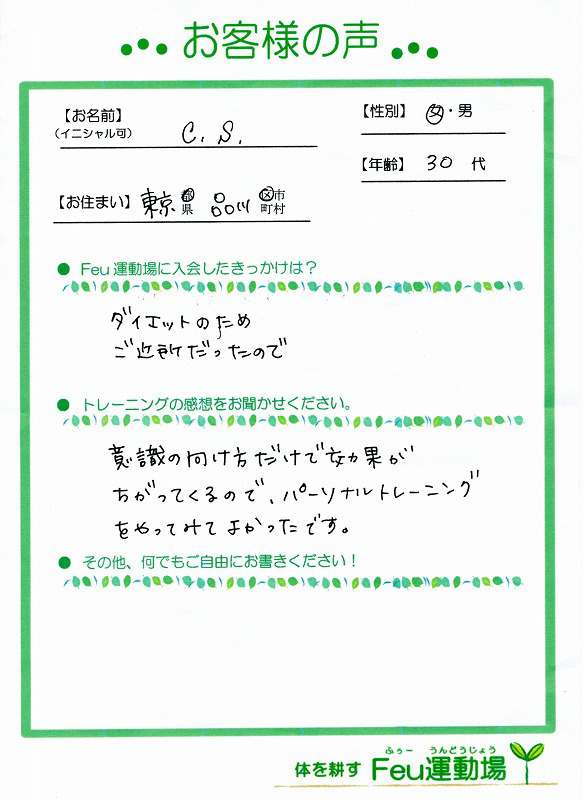 お客様の声
【お名前】
(イニシャル可)
C. S.
【性別】 女・男
【年齢】 30 代
【お住まい】 東京 都県 品川 区市町村
● Feu運動場に入会したきっかけは?
ダイエットのため
ご近所だったので
● トレーニングの感想をお聞かせください。
意識の向け方だけで効果が
ちがってくるので、パーソナルトレーニング
をやってみてよかったです。
● その他、何でもご自由にお書きください!
ふぅー うんどうじょう
体を耕す Feu運動場